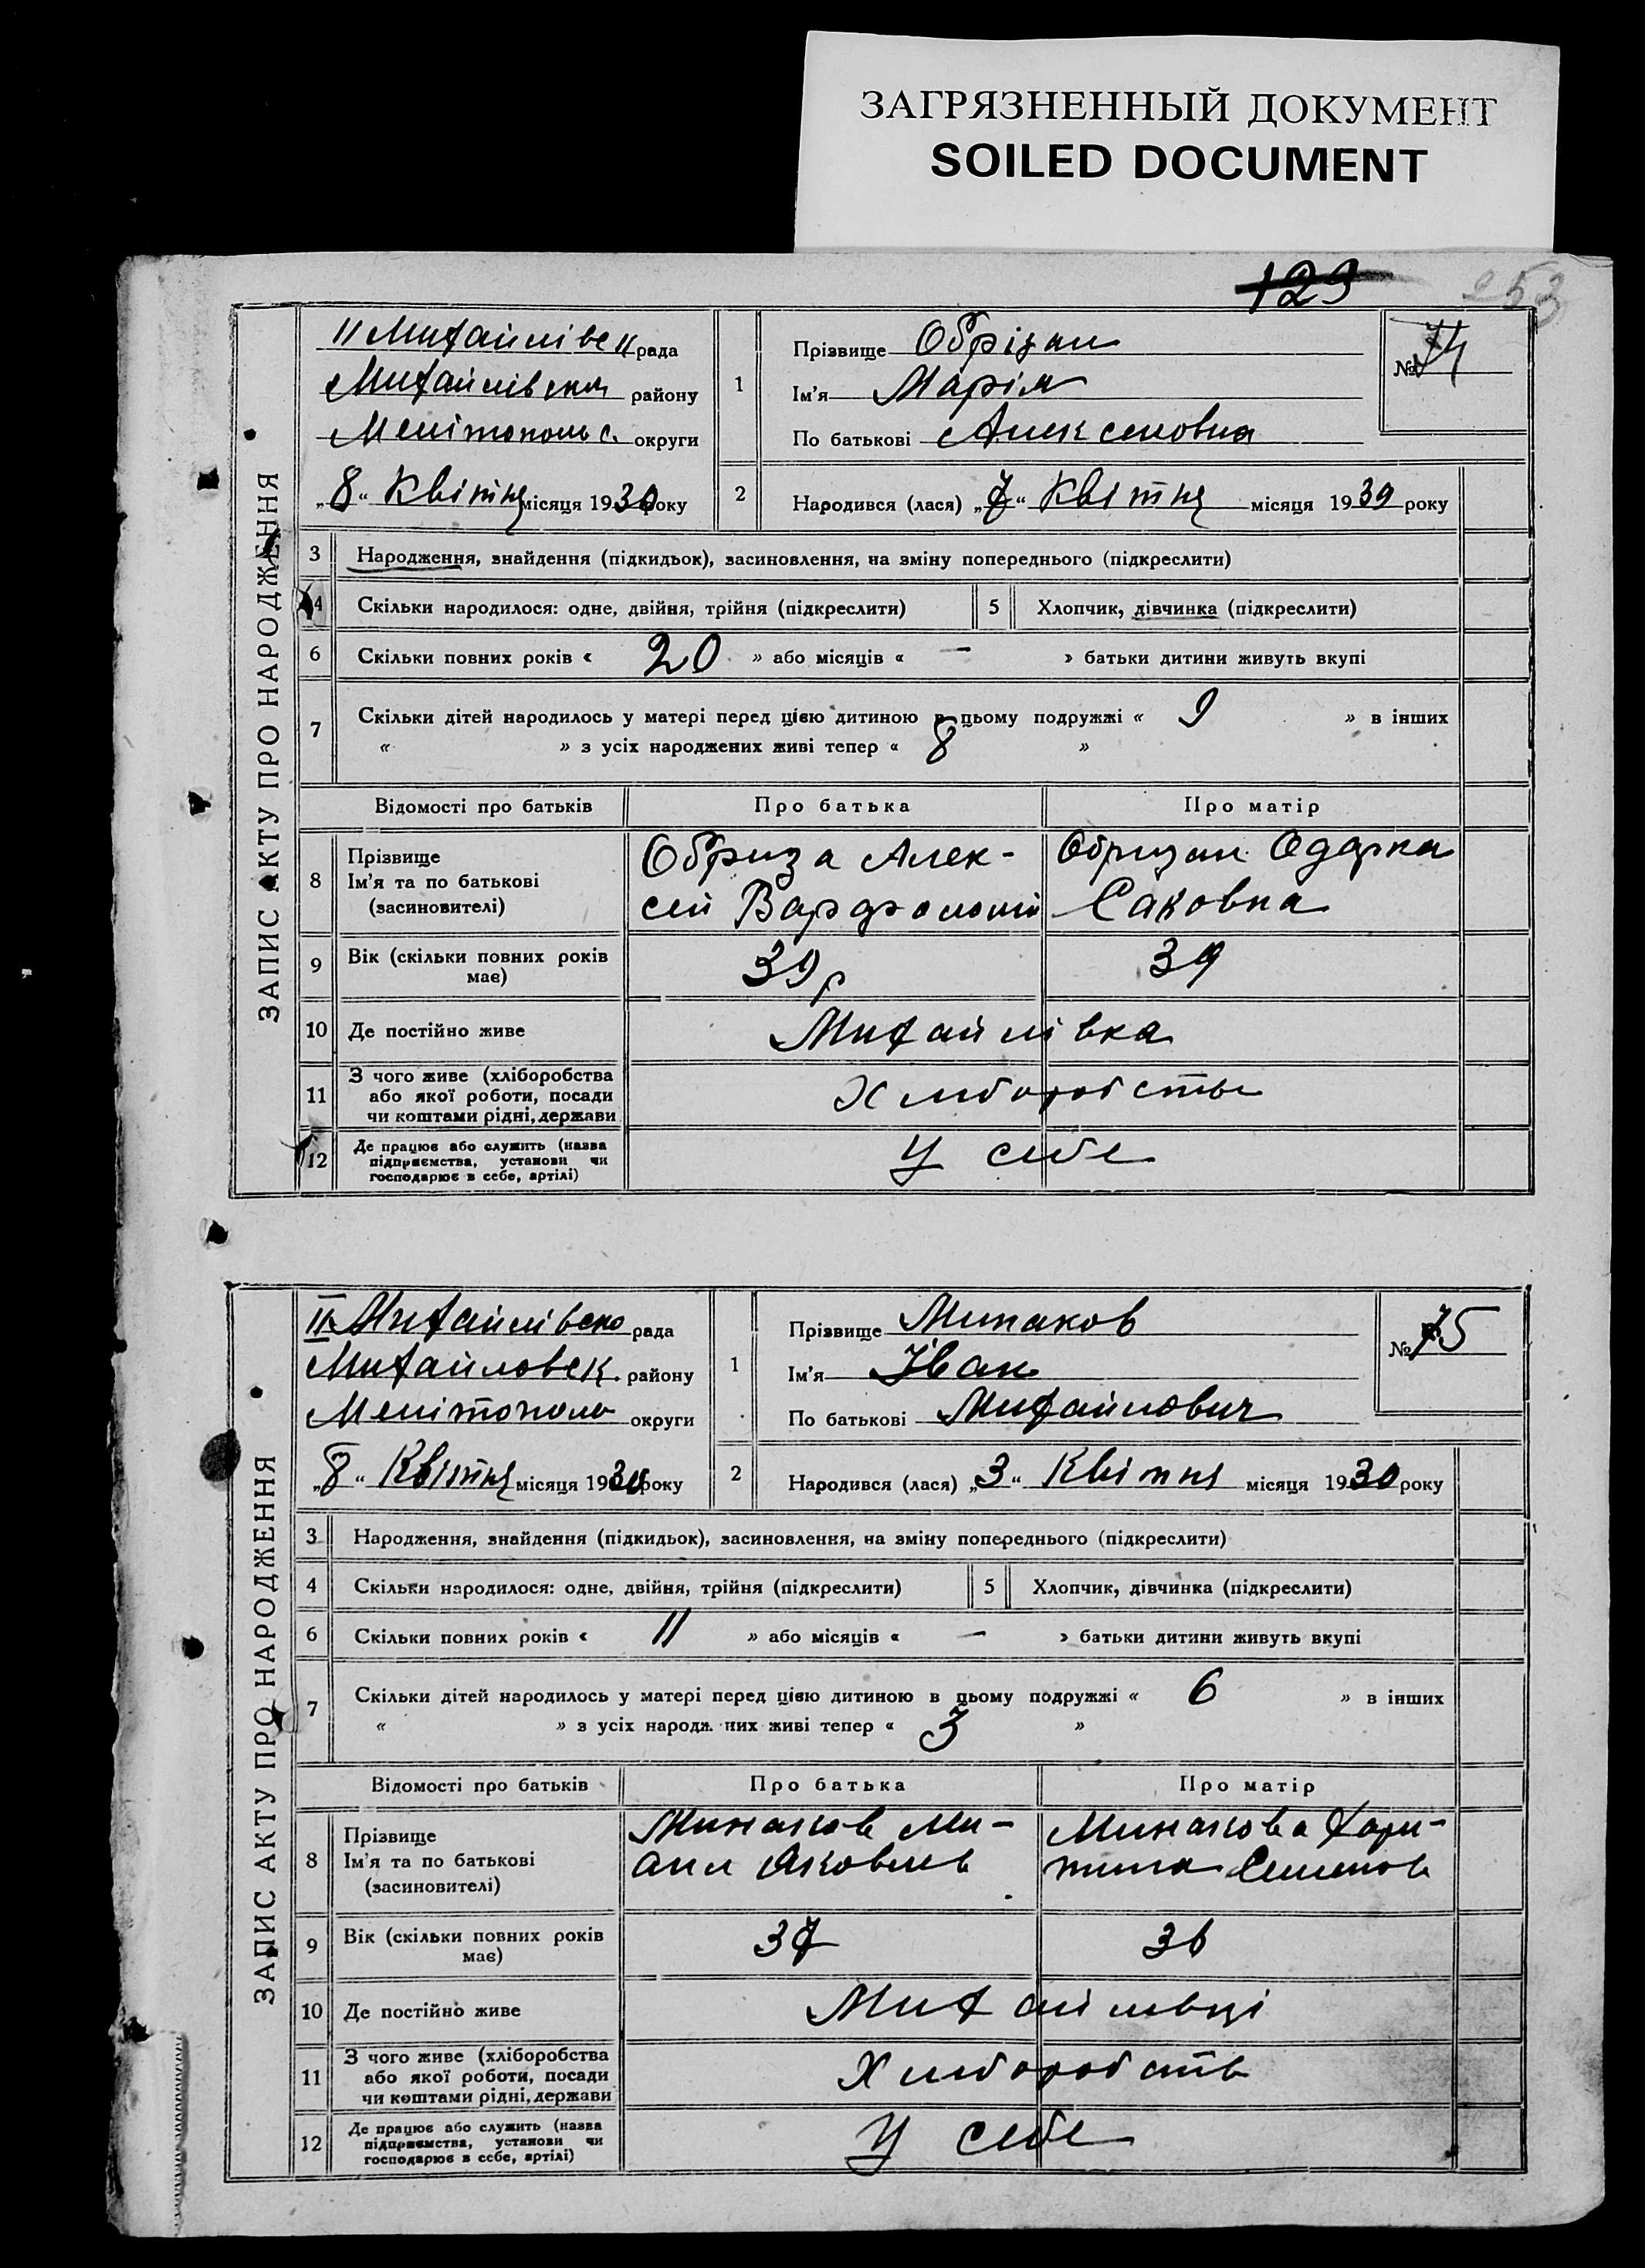 ЗАГРЯЗНЕННЫЙ ДОКУМЕНТ
SOILED DOCUMENT
129
253
ЗАПИС АКТУ ПРО НАРОДЖЕННЯ
II Михайлівск рада
Михайлівська району
Мелітопольс. округи
„8“ Квітня місяця 1930 року
1
Прізвище Обрізан
Ім'я Марія
По батькові Алексеювна
№ 74
2
Народився (лася) „7“ Квітня місяця 1930 року
3 Народження, знайдення (підкидьок), засиновлення, на зміну попереднього (підкреслити)
4 Скільки народилося: одне, двійня, трійня (підкреслити) 5 Хлопчик, дівчинка (підкреслити)
6 Скільки повних років « 20 » або місяців « — » батьки дитини живуть вкупі
7 Скільки дітей народилось у матері перед цією дитиною в цьому подружжі « 9 » в інших
« » з усіх народжених живі тепер « 8 »
Відомості про батьків Про батька Про матір
8 Прізвище
Ім'я та по батькові
(засиновителі)
Обриза Алек-
сей Варфоломій
Обризан Одарка
Саковна
9 Вік (скільки повних років
має)
39 р
39
10 Де постійно живе Михайлівка
11 З чого живе (хліборобства
або якої роботи, посади
чи коштами рідні, держави
Хлиборобство
12 Де працює або служить (назва
підприємства, установи чи
господарює в себе, артілі)
У себе
ЗАПИС АКТУ ПРО НАРОДЖЕННЯ
II Михайлівско рада
Михайловск. району
Мелітополь округи
„8“ Квітня місяця 1930 року
1
Прізвище Минаков
Ім'я Іван
По батькові Михайлович
№ 75
2
Народився (лася) „3“ Квітня місяця 1930 року
3 Народження, знайдення (підкидьок), засиновлення, на зміну попереднього (підкреслити)
4 Скільки народилося: одне, двійня, трійня (підкреслити) 5 Хлопчик, дівчинка (підкреслити)
6 Скільки повних років « 11 » або місяців « — » батьки дитини живуть вкупі
7 Скільки дітей народилось у матері перед цією дитиною в цьому подружжі « 6 » в інших
« » з усіх народж них живі тепер « 3 »
Відомості про батьків Про батька Про матір
8 Прізвище
Ім'я та по батькові
(засиновителі)
Минаков Ми-
аил Яковлев
Минакова Хари-
тина Семенов
9 Вік (скільки повних років
має)
37
36
10 Де постійно живе Михайлівці
11 З чого живе (хліборобства
або якої роботи, посади
чи коштами рідні, держави
Хлиборобств
12 Де працює або служить (назва
підприємства, установи чи
господарює в себе, артілі)
У себе